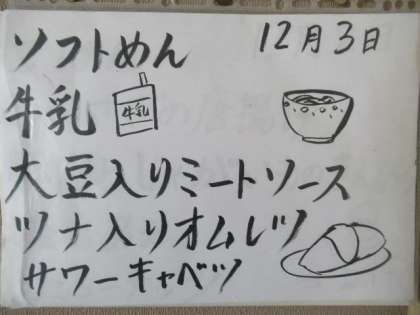 ソフトめん 12月3日
牛乳 牛乳
大豆入りミートソース
ツナ入りオムレツ
サワーキャベツ